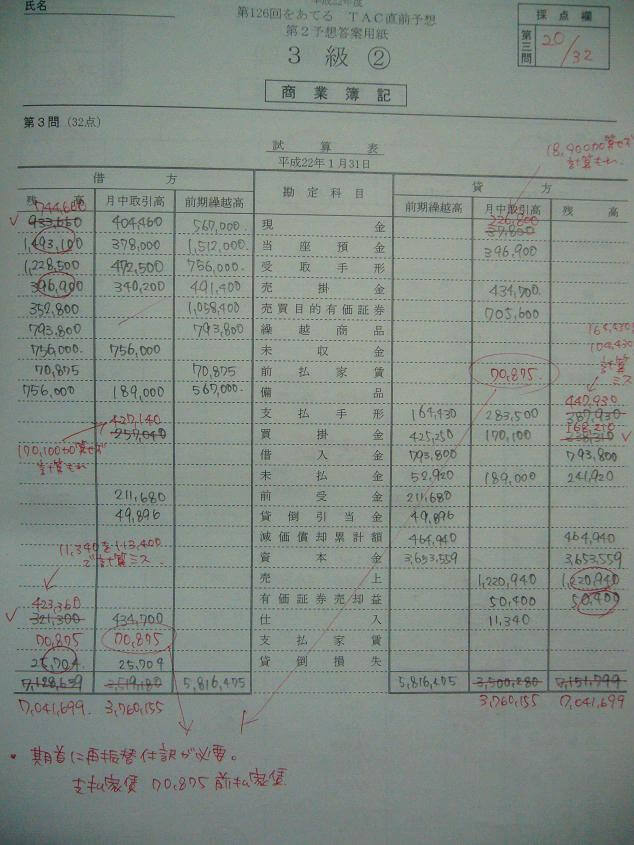 氏名
平成22年度
第126回をあてる TAC直前予想
第2予想答案用紙
3 級 ②
商 業 簿 記
採 点 欄
第三問
20/32
第3問 (32点)
試 算 表
平成22年1月31日
18,900の算せず
計算もれ
借 方 勘 定 科 目 貸 方
残 高 月中取引高 前期繰越高 前期繰越高 月中取引高 残 高
744,660 326,800
933,660 404,460 567,000 現 金 37,830
1,493,100 378,000 1,512,000 当 座 預 金 396,900
1,228,500 472,500 756,000 受 取 手 形
396,900 340,200 491,400 売 掛 金 434,700
352,800 1,058,400 売買目的有価証券 705,600
793,800 793,800 繰 越 商 品
756,000 756,000 未 収 金
70,875 70,875 前 払 家 賃 70,875
756,000 189,000 567,000 備 品
164,430を
104,430
計算
ミス
440,930
支 払 手 形 164,430 283,500 287,930
427,140 168,210
257,040 買 掛 金 425,250 170,100 338,310
170,100の算せず
計算もれ
借 入 金 793,800 793,800
未 払 金 52,920 189,000 241,920
211,680 前 受 金 211,680
49,896 貸 倒 引 当 金 49,896
減価償却累計額 464,940 464,940
資 本 金 3,653,559 3,653,559
11,340を113,400
で計算ミス
売 上 1,220,940 1,220,940
有価証券売却益 50,400 50,400
423,360
321,300 434,700 仕 入 11,340
70,875 70,875 支 払 家 賃
25,704 25,704 貸 倒 損 失
7,128,639 3,519,180 5,816,475 5,816,475 3,500,280 7,151,799
7,041,699 3,760,155 3,760,155 7,041,699
・期首に再振替仕訳が必要。
支払家賃 70,875 前払家賃